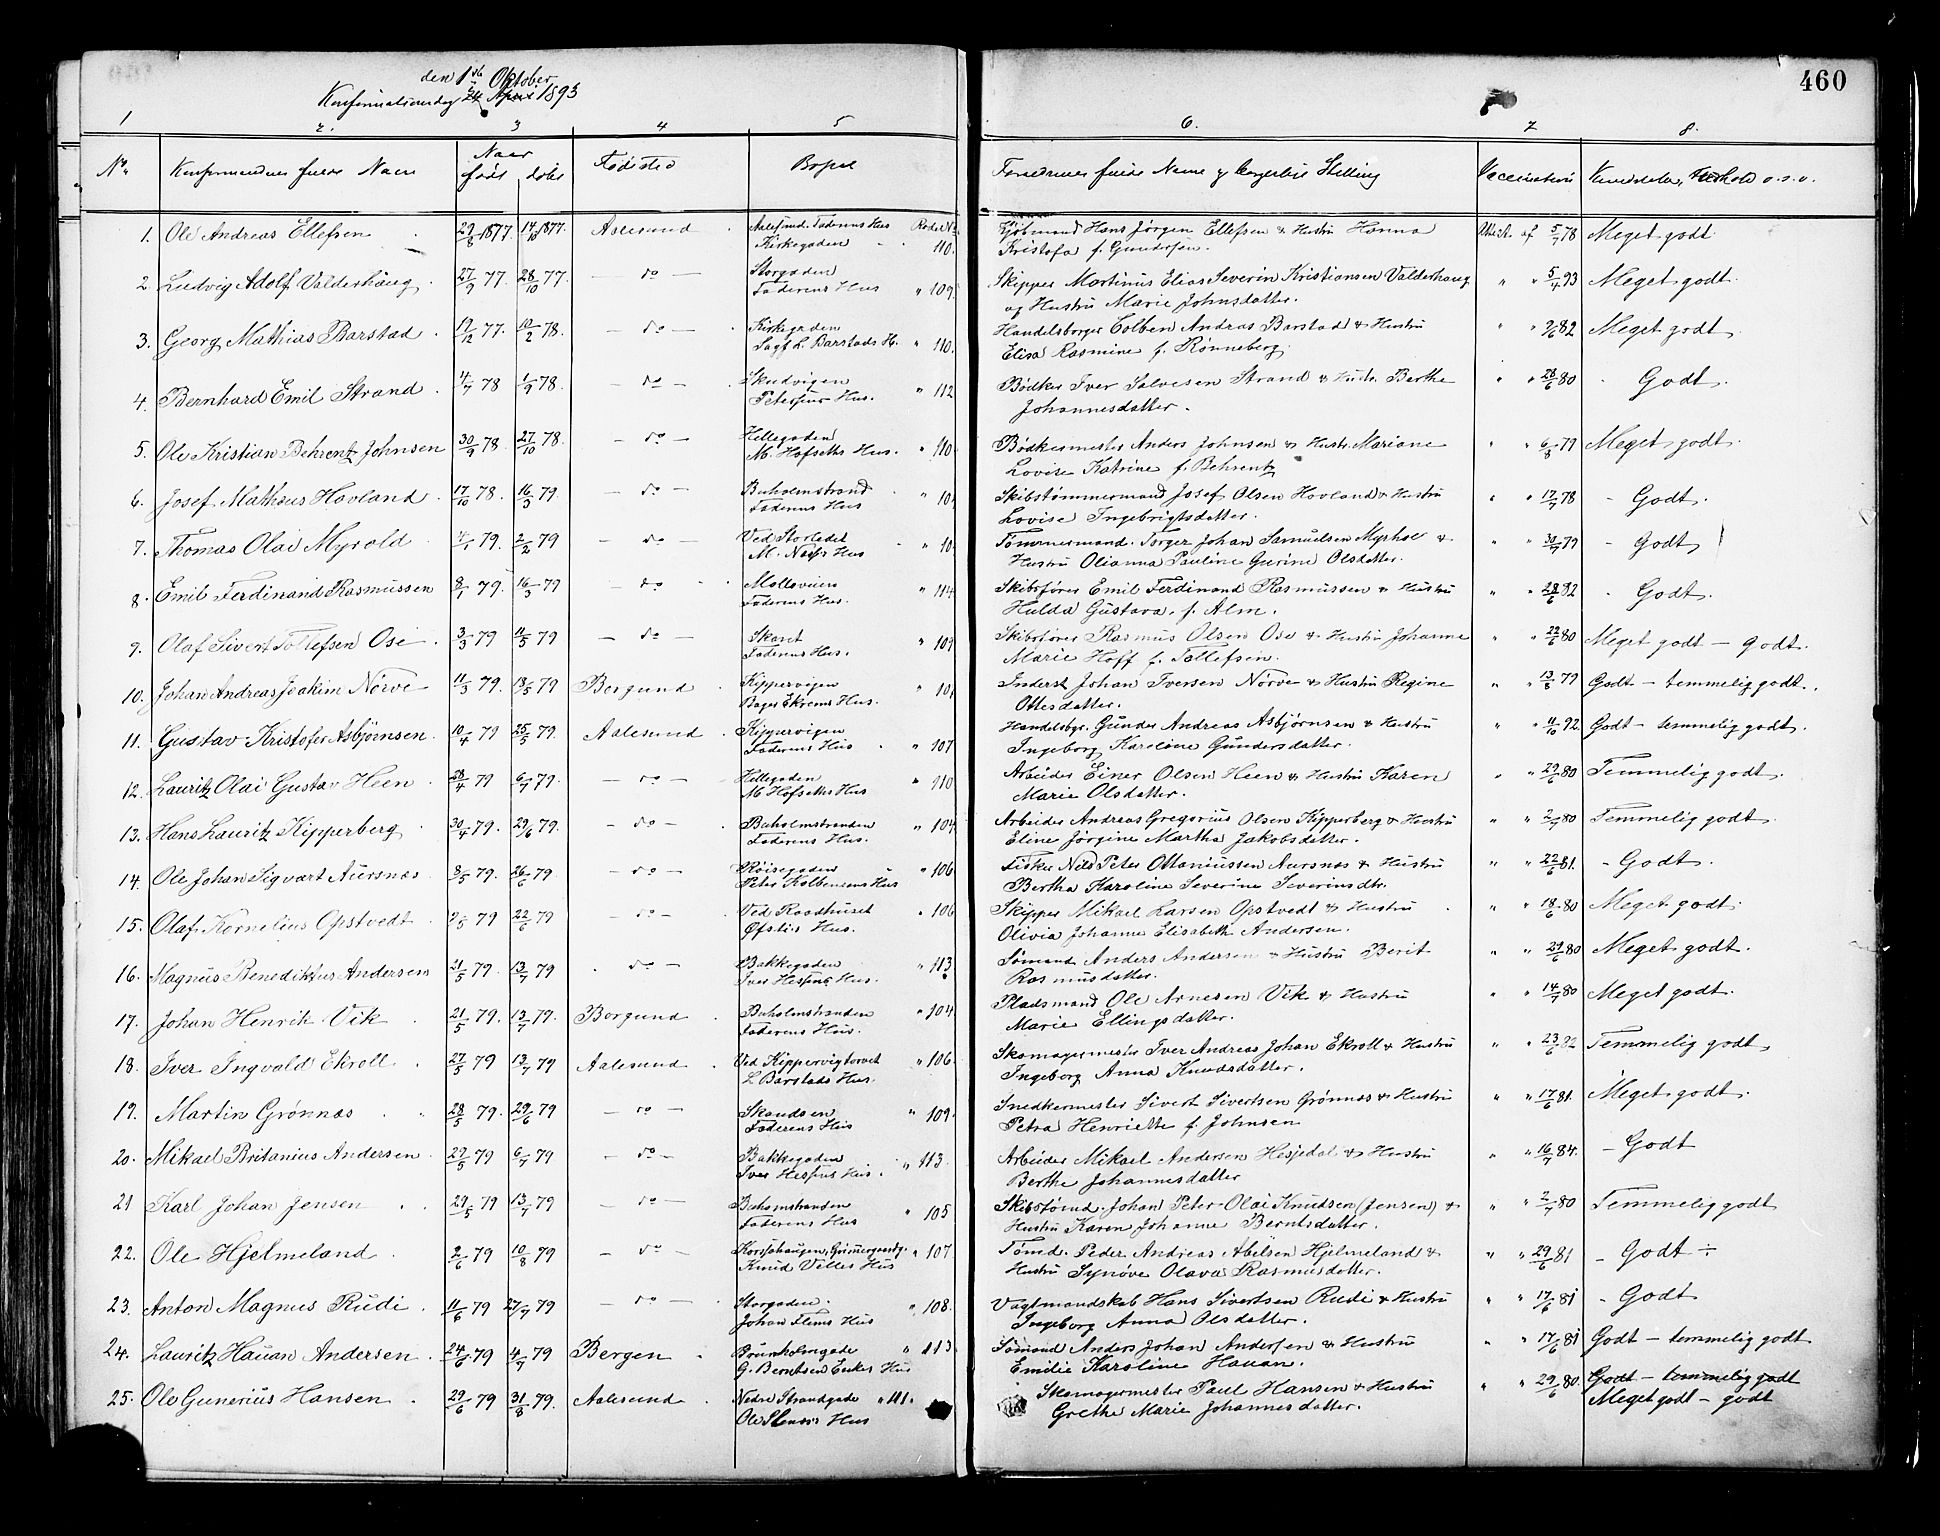 460
den 1ste Oktober
Konfirmationsdag 24 April 1893
1 2. 3 4 5 6. 7 8.
No Konfirmandens fulde Navn Naar født døbt Fødested Bopæl Forældrenes fulde Navne og borgerlige Stilling Vaccination Kundskaber, Forhold o.s.v.
1. Ole Andreas Ellefsen 29/8 1877. 14/10 1877. Aalesund Aalesund. Faderens Hus Rode No Kjøbmand Hans Jørgen Ellefsen & Hustru Hanna Attest af 5/7 78 Meget godt
Kirkegaden 110. Kristofa f. Gundersen.
2. Ludvig Adolf Valderhaug 27/9 77 28/10 77. — do — Storgaden Skipper Martinus Elias Severin Kristiansen Valderhaug " " 5/4 93 Meget godt.
Faderens Hus " 109. og Hustru Marie Johnsdatter.
3. Georg Mathias Barstad 19/12 77. 10/2 78. — do — Kirkegaden Handelsborger Colben Andreas Barstad & Hustru " " 9/6 82 Meget godt
Sagf. L. Barstads H. " 110. Elisa Rasmine f. Rønneberg.
4. Bernhard Emil Strand 4/7 78 1/9 78. — do — Skudvigen Bødker Iver Salvesen Strand & Hustr. Berthe " " 28/6 80 - Godt.
Hus. " 112 Johannesdatter.
5. Ole Kristian Behrentz Johnsen 30/9 78 27/10 78. — do — Hellegaden Bødkermester Anders Johnsen & Hustr. Mariane " " 6/8 79 Meget godt.
M. Hofseths Hus. " 110. Lovise Katrine f. Behrentz
6. Josef Mathæus Hovland 17/10 78. 16/3 79. — do — Buholmstrand Skibstømmermand Josef Olsen Hovland & Hustru " " 17/7 78 - Godt.
Faderens Hus " 10 Lovise Ingebrigtsdatter.
7. Thomas Olai Myrold 4/1 79. 2/2 79 — do — Ved Storledet Tømmermand Torger Johan Samuelsen Myrhol & " " 30/7 79 - Godt
M. Hus " 10 Hustru Olianna Pauline Gurine Olsdatter.
8. Emil Ferdinand Rasmussen 8/1 79. 16/3 79 — do Molloveien Skibsfører Emil Ferdinand Rasmussen & Hustru " " 28/6 82 - Godt.
Faderens Hus. " 114 Hulda Gustava f. Alm.
9. Olaf Sivert Tollefsen Ose 3/3 79 11/5 79 — do — Skaret Skibsfører Rasmus Olsen Ose & Hustru Johanne " " 22/6 80 Meget godt - godt.
Faderens Hus. " 109 Marie Hoff f. Tollefsen.
10. Johan Andreas Joakim Nørve 11/3 79. 18/5 79 Borgund Kippervigen Inderst Johan Iversen Nørve & Hustru Regine " " 13/8 79 Godt - temmelig godt.
Bager Ekrems Hus. " 101 Ottesdatter.
11. Gustav Kristofer Asbjørnsen. 10/4 79 25/5 79. Aalesund Kippervigen Handelsbgr. Gunder Andreas Asbjørnsen & Hustru " " 11/10 92. Godt - temmelig godt.
Faderens Hus " 107 Ingeborg Karoline Gundersdatter.
12. Lauritz Olai Gustav Heen 28/4 79 6/7 79. — do — Hellegaden Arbeider Einer Olsen Heen & Hustru Karen " " 29/6 80 Temmelig godt.
M. Hofseths Hus " 110 Marie Olsdatter.
13. Hans Lauritz Kipperberg 30/4 79. 29/6 79. — do — Buholmstranden Arbeider Andreas Gregorius Olsen Kipperberg & Hustru " " 2/7 80 Temmelig godt.
Faderens Hus. " 104. Eline Jørgine Martha Jakobsdatter.
14. Ole Johan Sigvart Aursnes 8/5 79. 26/6 79. — do — Røisegaden Fisker Nils Peter Ottaniussen Aursnes & Hustru " " 22/6 81. - Godt.
Peter Kolbensens Hus " 106 Bertha Karoline Severine Severinsdtr.
15. Olaf Kornelius Opstvedt 9/5 79 22/6 79 — do — Ved Raadhuset Skipper Mikael Larsen Opstvedt & Hustru " " 18/6 80 Meget godt.
Øfstis Hus. " 106 Olivia Johanne Elisabeth Andersen.
16. Magnus Benediktus Andersen 21/5 79. 13/7 79 — do — Bakkegaden Sømand Anders Andersen & Hustru Berit " " 29/6 80 Meget godt.
Iver Hespens Hus " 113 Rasmusdatter.
17. Johan Henrik Vik 21/5 79. 13/7 79. Borgund Buholmstranden Pladsmand Ole Arnesen Vik & Hustru " " 14/7 80 Meget godt.
Faderens Hus. " 104. Marie Ellingsdatter.
18. Iver Ingvald Ekroll 27/5 79 13/7 79 Aalesund Ved Kippervigtorvet Skomagermester Iver Andreas Johan Ekroll & Hustru " " 23/6 82 Temmelig godt
L. Barstads Hus. " 106. Ingeborg Anna Knudsdatter.
19. Martin Grønnæs 28/5 79. 29/6 79 — do — Skandsen Snedkermester Sivert Sivertsen Grønnæs & Hustru " " 17/6 81. Meget godt.
Faderens Hus " 109. Petra Henriette f. Johnsen
20. Mikael Britanius Andersen 29/5 79 6/7 79 — do — Bakkegaden Arbeider Mikael Andersen Hespdal & Hustru " " 16/7 84. - Godt
Iver Hespens Hus. " 113. Berthe Johannesdatter
21 Karl Johan Jensen 29/5 79 13/7 79 — do — Buholmstranden Skibstømd. Johan Peter Olai Knudsen (Jensen) & " " 2/7 80 Temmelig godt
Faderens Hus " 105 Hustru Karen Johanne Berntsdatter.
22. Ole Hjelmeland 2/6 79 10/8 79 — do — Korsehaugen, Grimmergaardg. Tømd. Peder Andreas Abelsen Hjelmeland & " " 29/6 81 - Godt ÷
Knud Villes Hus " 107. Hustru Synøve Olava Rasmusdatter.
23. Anton Magnus Rudi 11/6 79 27/7 79 — do — Storgaden. Vagtmandskab Hans Sivertsen Rudi & Hustru " " 17/6 81 - Godt
Johan Flems Hus " 108. Ingeborg Anna Olsdatter.
24. Lauritz Hauan Andersen 24/6 79 4/9 79 Bergen Brunholmgade Sømand Anders Johan Andersen & Hustru " " 17/6 81 Godt - temmelig godt
G. Berntsen Enkes Hus " 113 Emilie Karoline Hauan.
25. Ole Gunerius Hansen 29/6 79 31/8 79. Aalesund Nedre Strandgade Skomagermester Paul Hansen & Hustru " " 29/6 80. Godt - temmelig godt
Ole Hus " 111. Grethe Marie Johannesdatter. Meget godt - godt